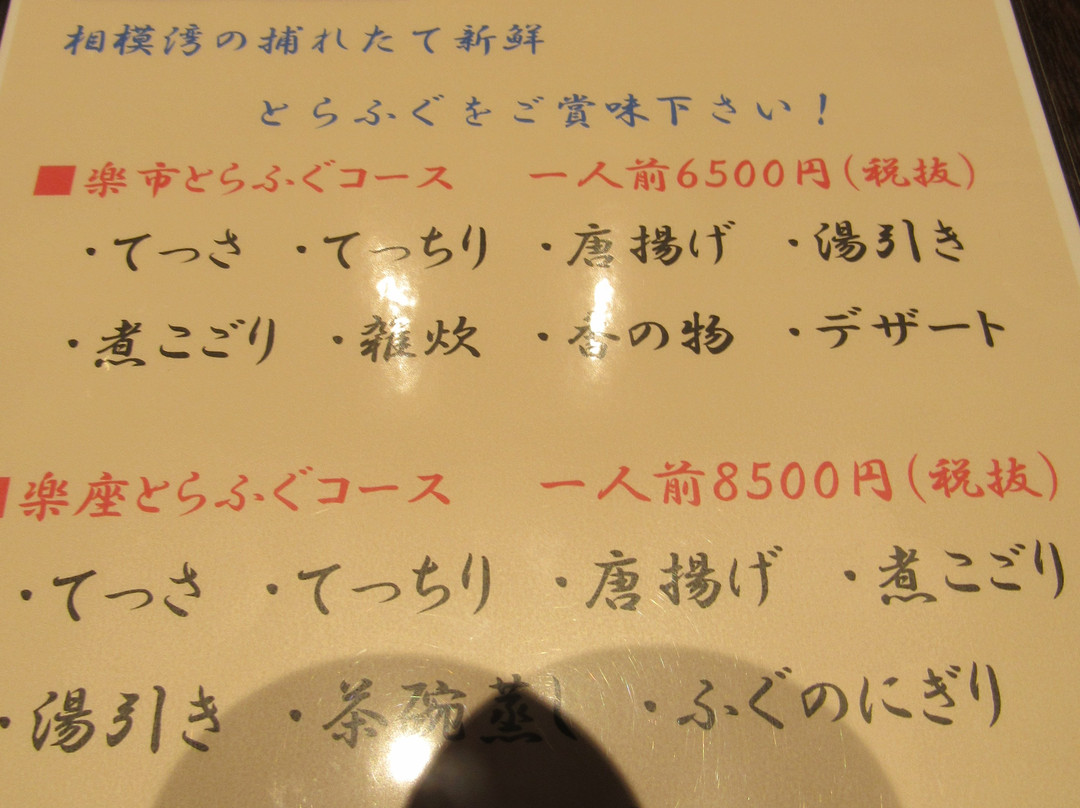 相模湾の捕れたて新鮮
とらふぐをご賞味下さい！
■楽市とらふぐコース 一人前6500円(税抜)
・てっさ ・てっちり ・唐揚げ ・湯引き
・煮こごり ・雑炊 ・香の物 ・デザート
■楽座とらふぐコース 一人前8500円(税抜)
・てっさ ・てっちり ・唐揚げ ・煮こごり
・湯引き ・茶碗蒸し ・ふぐのにぎり